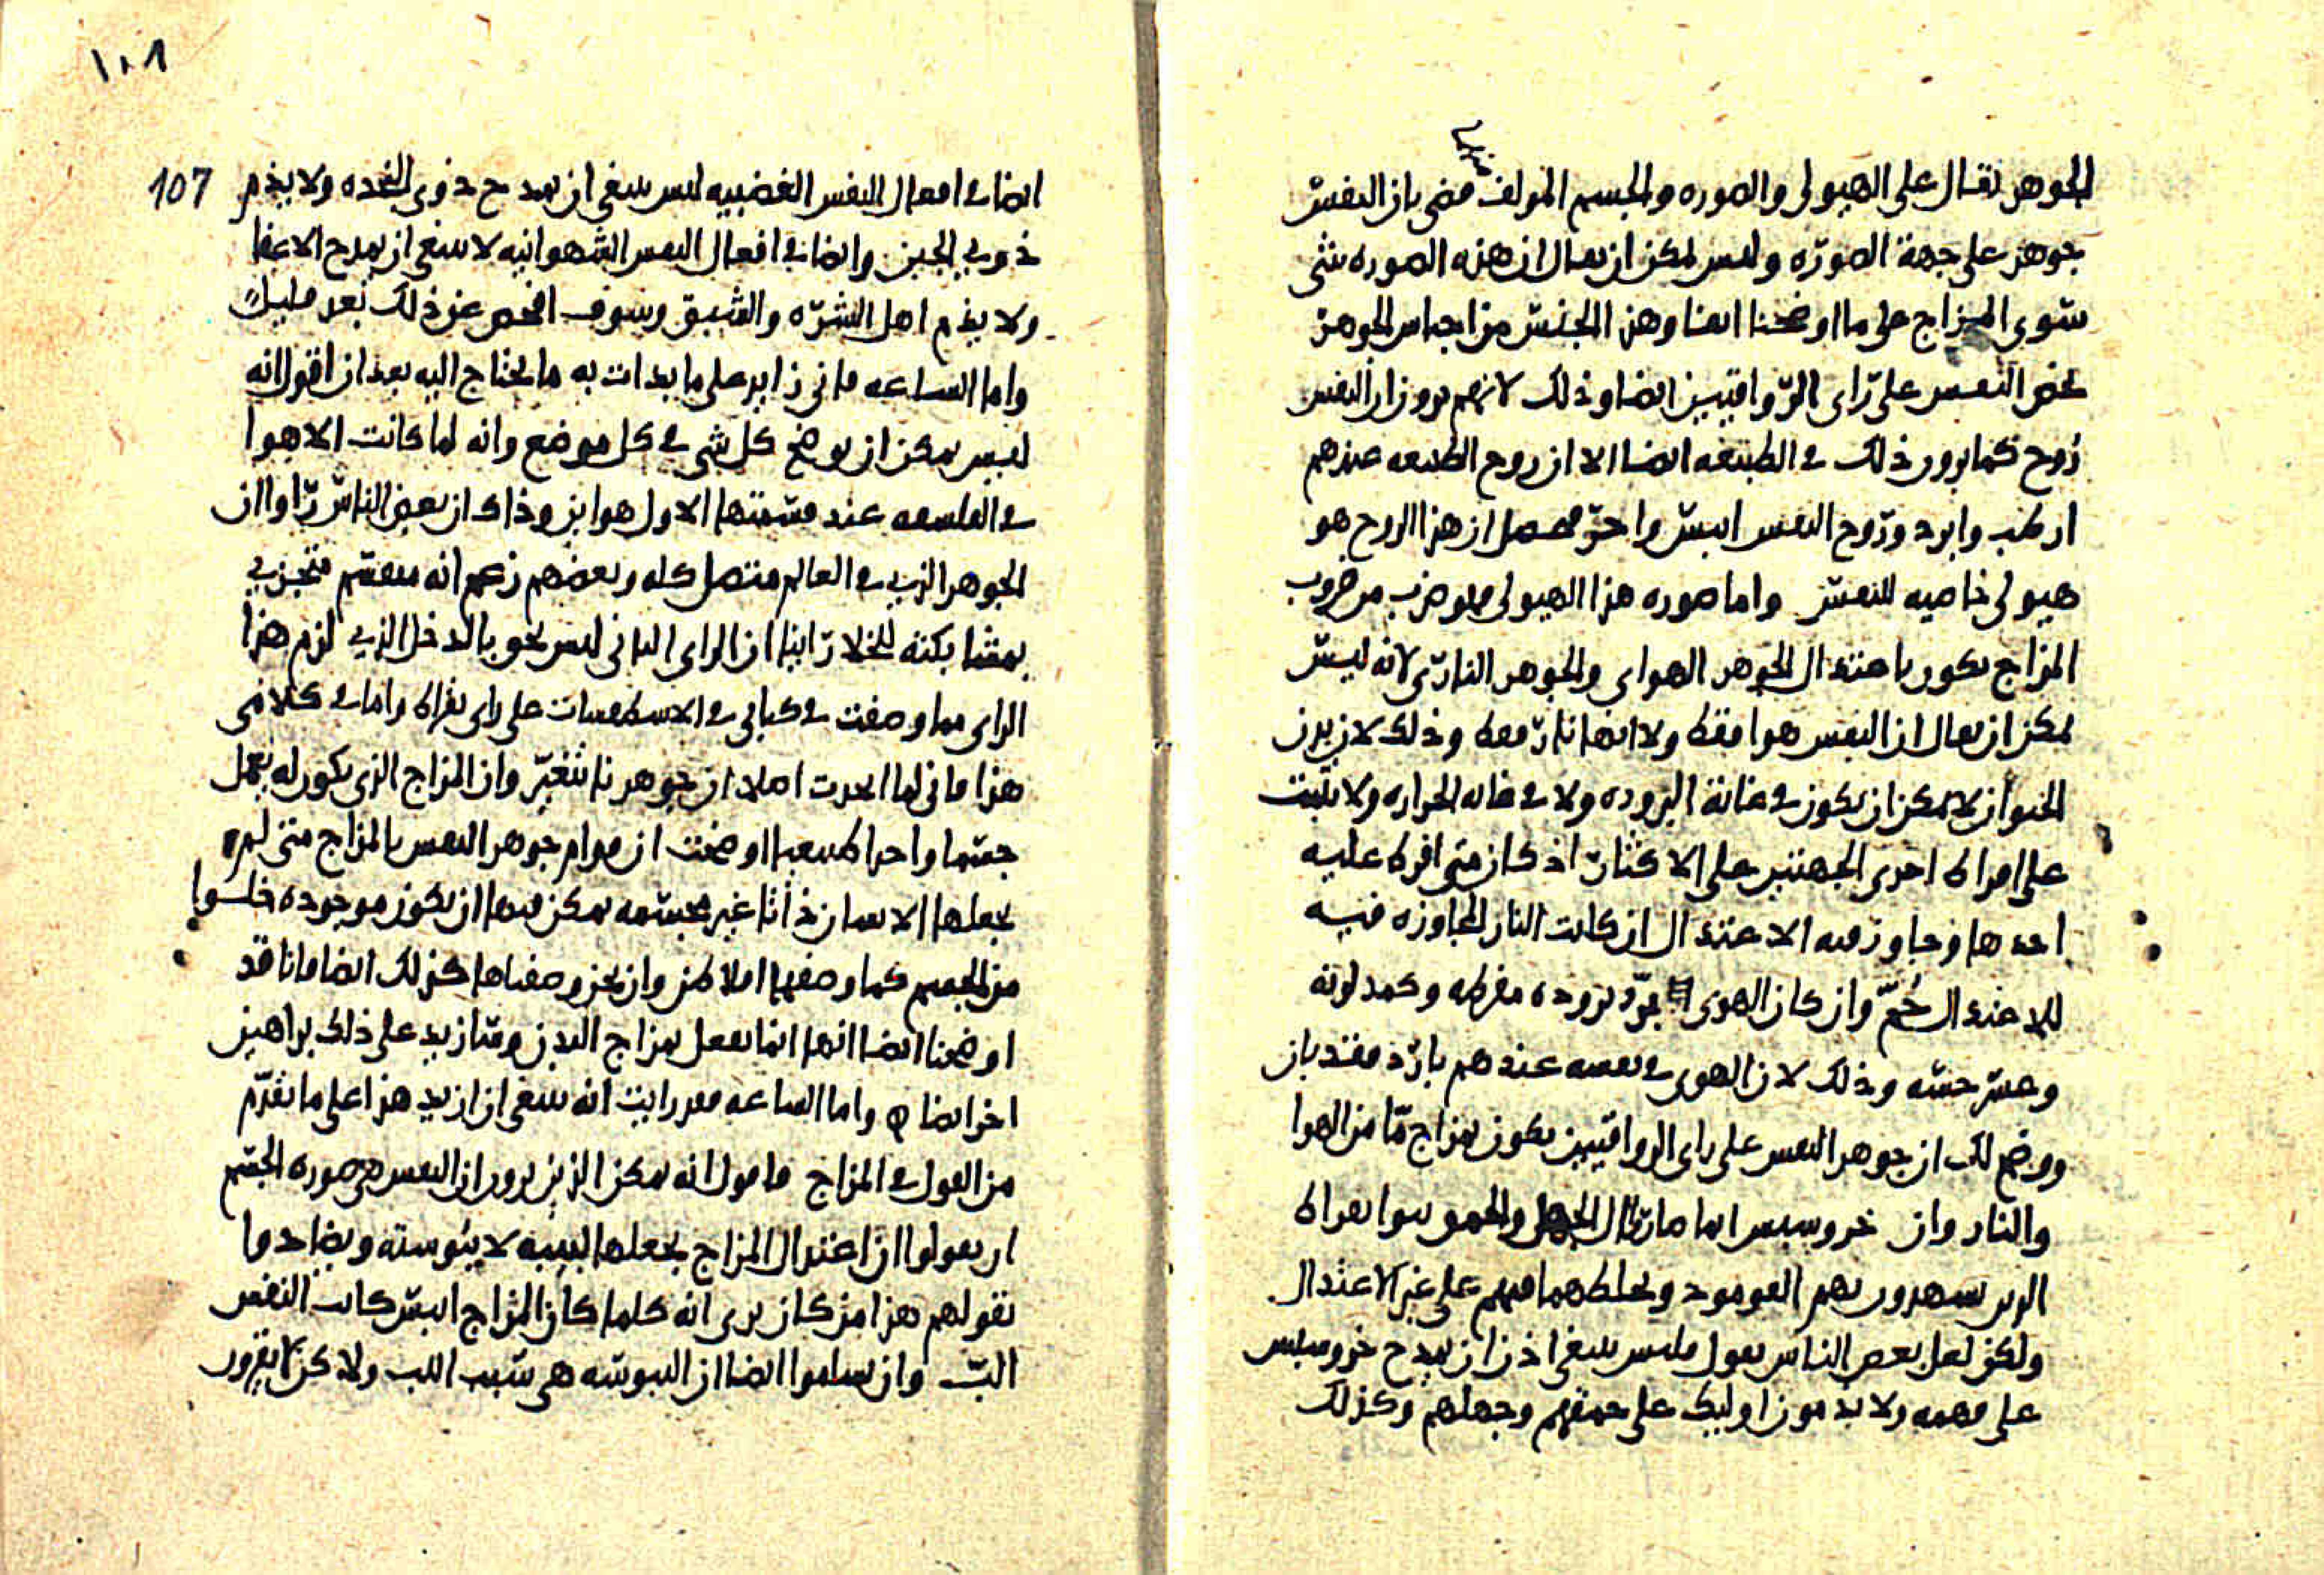 الجوهر يقال على الهيولى والصوره والجسم المولف منهما فقضى بان النفس
جوهر على جهة الصوره وليس يمكن ان يقال ان هذه الصوره شى
سوى المزاج على ما اوضحنا ايضا وهذا الجنس من اجناس الجوهر
يخص النفس على راى الرواقيين ايضا وذلك لانهم يرون ان النفس
روح كما يرون ذلك فى الطبيعه ايضا الا ان روح الطبيعه عندهم
ارطب وابرد وروح النفس ايبس واحر فحصل ان هذا الروح هو
هيولى خاصيه للنفس واما صوره هذا الهيولى فهو ضرب من ضروب
المزاج يكون باعتدال الجوهر الهواى والجوهر النارى لانه ليس
يمكن ان يقال ان النفس هوا فقط ولا ايضا نار فقط وذلك لان بدن
الحيوان لا يمكن ان يكون فى غاية البروده ولا فى غايه الحراره ولا يثبت
على افراط احدى الجهتين على الاكثار اذ كان متى افرط عليه
احدها وجاوز فيه الاعتدال ان كانت النار المجاوزه فيه
للاعتدال حُمّ وان كان الهوى برد بروده مفرطه وكمد لونه
وعسر حسه وذلك لان الهوى فى نفسه عندهم بارد فقد بان
ووضح لك ان جوهر النفس على راى الرواقيين يكون بمزاج مّا من الهوا
والنار وان خروسبس انما ماررال الجهل والحمق سوا بقراط
الدين يسهدون بهم القوموود ويحلطهما فيهم على غير الاعتدال
ولكن لعل بعض الناس يقول فليس ينبغى اذن ان يمدح خروسبس
على فهمه ولا يذمون اوليك على حمقهم وجهلهم وكذلك
١٠٨
107
ايضا فى افعال النفس الغضبيه ليس ينبغى ان يمدح ذوى النجده ولا يذم
ذوى الجبن وايضا فى افعال النفس الشهوانيه لا ينبغى ان يمدح الاعفا
ولا يذم اهل الشره والشبق وسوف افحص عن ذلك بعد قليل
واما الساعه فانى زايد على ما بدات به ما يحتاج اليه بعد ان اقول انه
ليس يمكن ان يوضح كل شى فى كل موضع وانه لما كانت الاهوا
فى الفلسفه عند قسمتها الاول هواين وذاك ان بعض الناس راوا ان
الجوهر الذى فى العالم متصل كله وبعضهم زعم انه منقسم متجزى
بمشابكته للخلا راينا ان الراى الثانى ليس نحو بالدخل الذى لزم هذا
الراى مما وصفت فى كتابى فى الاسطقسات على راى بقراط واما فى كلامى
هذا فانى لما اخذت اصلا ان جوهرنا يتغير وان المزاج الذى يكون له يعمل
جسما واحدا طبيعيا اوضحت ان قوام جوهر النفس بالمزاج متى لم
يجعلها الانسان ذاتا غير مجسمه يمكن فيها ان يكون موجوده خلوا
من الجسم كما وصفها افلاطن وان نحن وصفناها كذلك ايضا فانا قد
اوضحنا ايضا انها انما تفعل بمزاج البدن وسازيد على ذلك براهين
اخر ايضا واما الساعه فقد رايت انه ينبغى ان ازيد هذا على ما تقدم
من القول فى المزاج فاقول انه يمكن الذين يرون ان النفس هى صوره الجسم
ان يقولوا ان اعتدال المزاج يجعلها لبيبه لا يبوسته ويضادوا
بقولهم هذا من كان يرى انه كلما كان المزاج ايبس كانت النفس
البّ وان يسلموا ايضا ان اليبوسه هى سبب اللب ولاكن لا يقرون